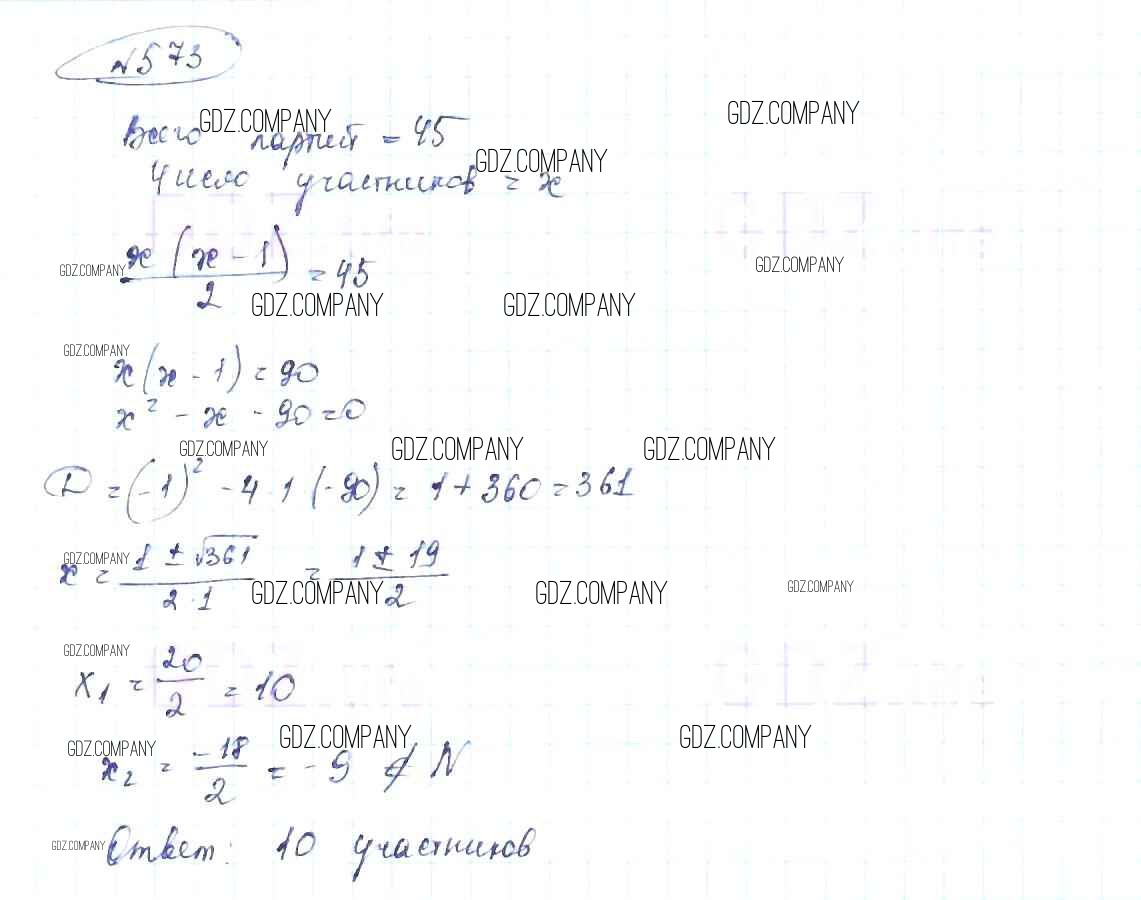 №573
GDZ.COMPANY GDZ.COMPANY
Всего партий = 45
GDZ.COMPANY
Число участников = x
x(x-1)/2 = 45
GDZ.COMPANY GDZ.COMPANY
GDZ.COMPANY GDZ.COMPANY
GDZ.COMPANY
x(x-1) = 90
x² - x - 90 = 0
GDZ.COMPANY GDZ.COMPANY GDZ.COMPANY
D = (-1)² - 4·1(-90) = 1 + 360 = 361
GDZ.COMPANY
x = (1 ± √361)/(2·1) = (1 ± 19)/2
GDZ.COMPANY GDZ.COMPANY GDZ.COMPANY
GDZ.COMPANY
x₁ = 20/2 = 10
GDZ.COMPANY GDZ.COMPANY GDZ.COMPANY
x₂ = -18/2 = -9 ∉ N
GDZ.COMPANY Ответ: 10 участников